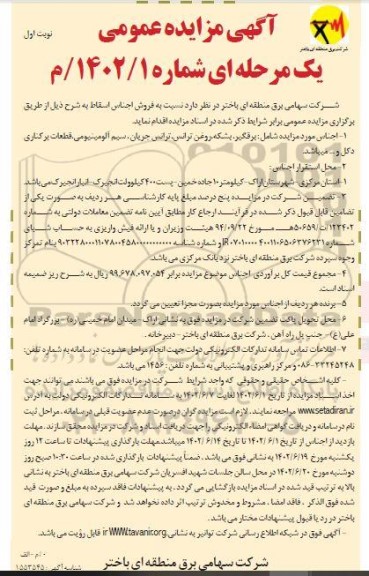 نوبت اول
آگهی مزایده عمومی
شرکت برق منطقه ای باختر
یک مرحله ای شماره ۱۴۰۲/۱/م
شرکت سهامی برق منطقه ای باختر در نظر دارد نسبت به فروش اجناس اسقاط به شرح ذیل از طریق
برگزاری مزایده عمومی برابر شرایط ذکر شده در اسناد مزایده اقدام نماید.
۱- اجناس مورد مزایده شامل: برقگیر، بشکه روغن ترانس، ترانس جریان، سیم آلومینیومی، قطعات یرکناری
دکل و... میباشد.
۲- محل استقرار اجناس:
۱- استان مرکزی- شهرستان اراک- کیلومتر ۱۰ جاده خمین- پست ۴۰۰ کیلوولت انجیرک- انبار انجیرک می‌باشد.
۳- تضمین شرکت در مزایده پنج درصد مبلغ پایه کارشناسی هر ردیف به صورت یکی از
تضامین قابل قبول ذکر شده در فرآیند ارجاع کار مطابق آیین نامه تضمین معاملات دولتی به شماره
۱۲۳۴۰۲/ت۵۰۶۵۹هـ مورخ ۹۴/۰۹/۲۲ هیئت وزیران و یا ارائه فیش واریزی به حساب شبای
شماره و شماره شناسه بنام تمرکز
وجوه سپرده شرکت برق منطقه ای باختر نزد بانک مرکزی می باشد.
۴- مجموع قیمت کل برآوردی اجناس موضوع مزایده برابر ۹۹,۶۷۸,۰۹۷,۰۵۴ ریال به شرح ریز ضمیمه
اسناد است.
۵- برنده هر ردیف از اجناس مورد مزایده بصورت مجزا تعیین می گردد.
۶- محل تحویل پاکت تضمین شرکت در مزایده فوق به نشانی اراک- میدان امام خمینی (ره)- بزرگراه امام
علی (ع)- جنب پل راه آهن- شرکت برق منطقه ای باختر- دبیرخانه.
۷- اطلاعات تماس سامانه تدارکات الکترونیکی دولت جهت انجام مراحل عضویت در سامانه به شماره تلفن:
۳۳۲۴۵۲۴۸-۰۸۶ و مرکز راهبری و پشتیبانی به شماره تلفن: ۱۴۵۶ می باشد.
- کلیه اشخاص حقیقی و حقوقی که واجد شرایط شرکت در مزایده فوق می باشند می توانند جهت
اخذ اسناد مزایده از تاریخ ۱۴۰۲/۶/۱ لغایت ۱۴۰۲/۶/۷ به سامانه تدارکات الکترونیکی دولت به آدرس
www.setadiran.ir مراجعه نمایند. لازم است مزایده گران در صورت عدم عضویت قبلی در سامانه، مراحل ثبت
نام در سامانه و دریافت گواهی امضاء الکترونیکی را جهت دریافت اسناد و شرکت در مزایده محقق سازند. مهلت
بازدید از اجناس از تاریخ ۱۴۰۲/۶/۱ تا تاریخ ۱۴۰۲/۶/۱۴ میباشد. مهلت بارگذاری پیشنهادات تا ساعت ۱۲ روز
یکشنبه مورخ ۱۴۰۲/۶/۱۹ به نشانی فوق می باشد. ضمناً پیشنهادات بارگذاری شده در ساعت ۱۰:۳۰ صبح روز
دوشنبه مورخ ۱۴۰۲/۶/۲۰ در محل سالن جلسات شهید افسریان شرکت سهامی برق منطقه ای باختر به نشانی
بالا به ترتیب قید شده در اسناد مزایده بازگشایی می گردد. به پیشنهادات فاقد سپرده به مبلغ و صورت قید
شده فوق الذکر، فاقد امضا، مشروط و مخدوش ترتیب اثر داده نخواهد شد و شرکت سهامی برق منطقه ای
باختر در رد یا قبول پیشنهادات مختار می باشد.
- آگهی فوق در شبکه اطلاع رسانی شرکت توانیر به نشانی www.tavanir.org.ir قابل رؤیت می باشد.
م/الف
شناسه آگهی: ۱۵۵۳۵۴۵
شرکت سهامی برق منطقه ای باختر